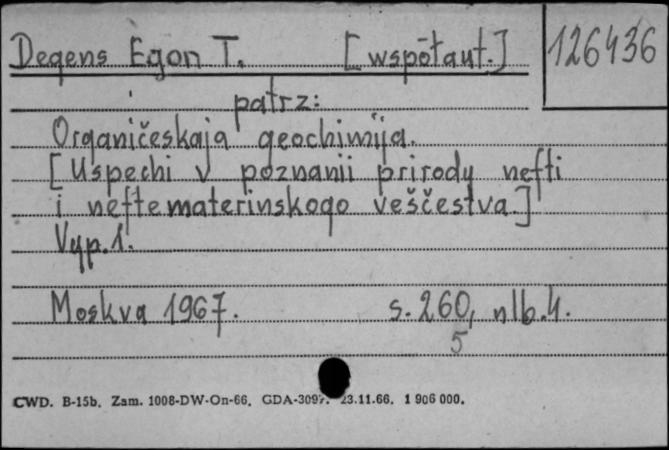 Degens Egon T. [współaut.] 126436
patrz:
Organičeskaja geochimija.
[Uspechi v poznanii prirody nefti
i neftematerinskogo veščestva.]
Vyp. 1.
Moskva 1967. s. 260, nlb. 4.
5
CWD. B-15b. Zam. 1008-DW-On-66. GDA-309. 23.11.66. 1 906 000.